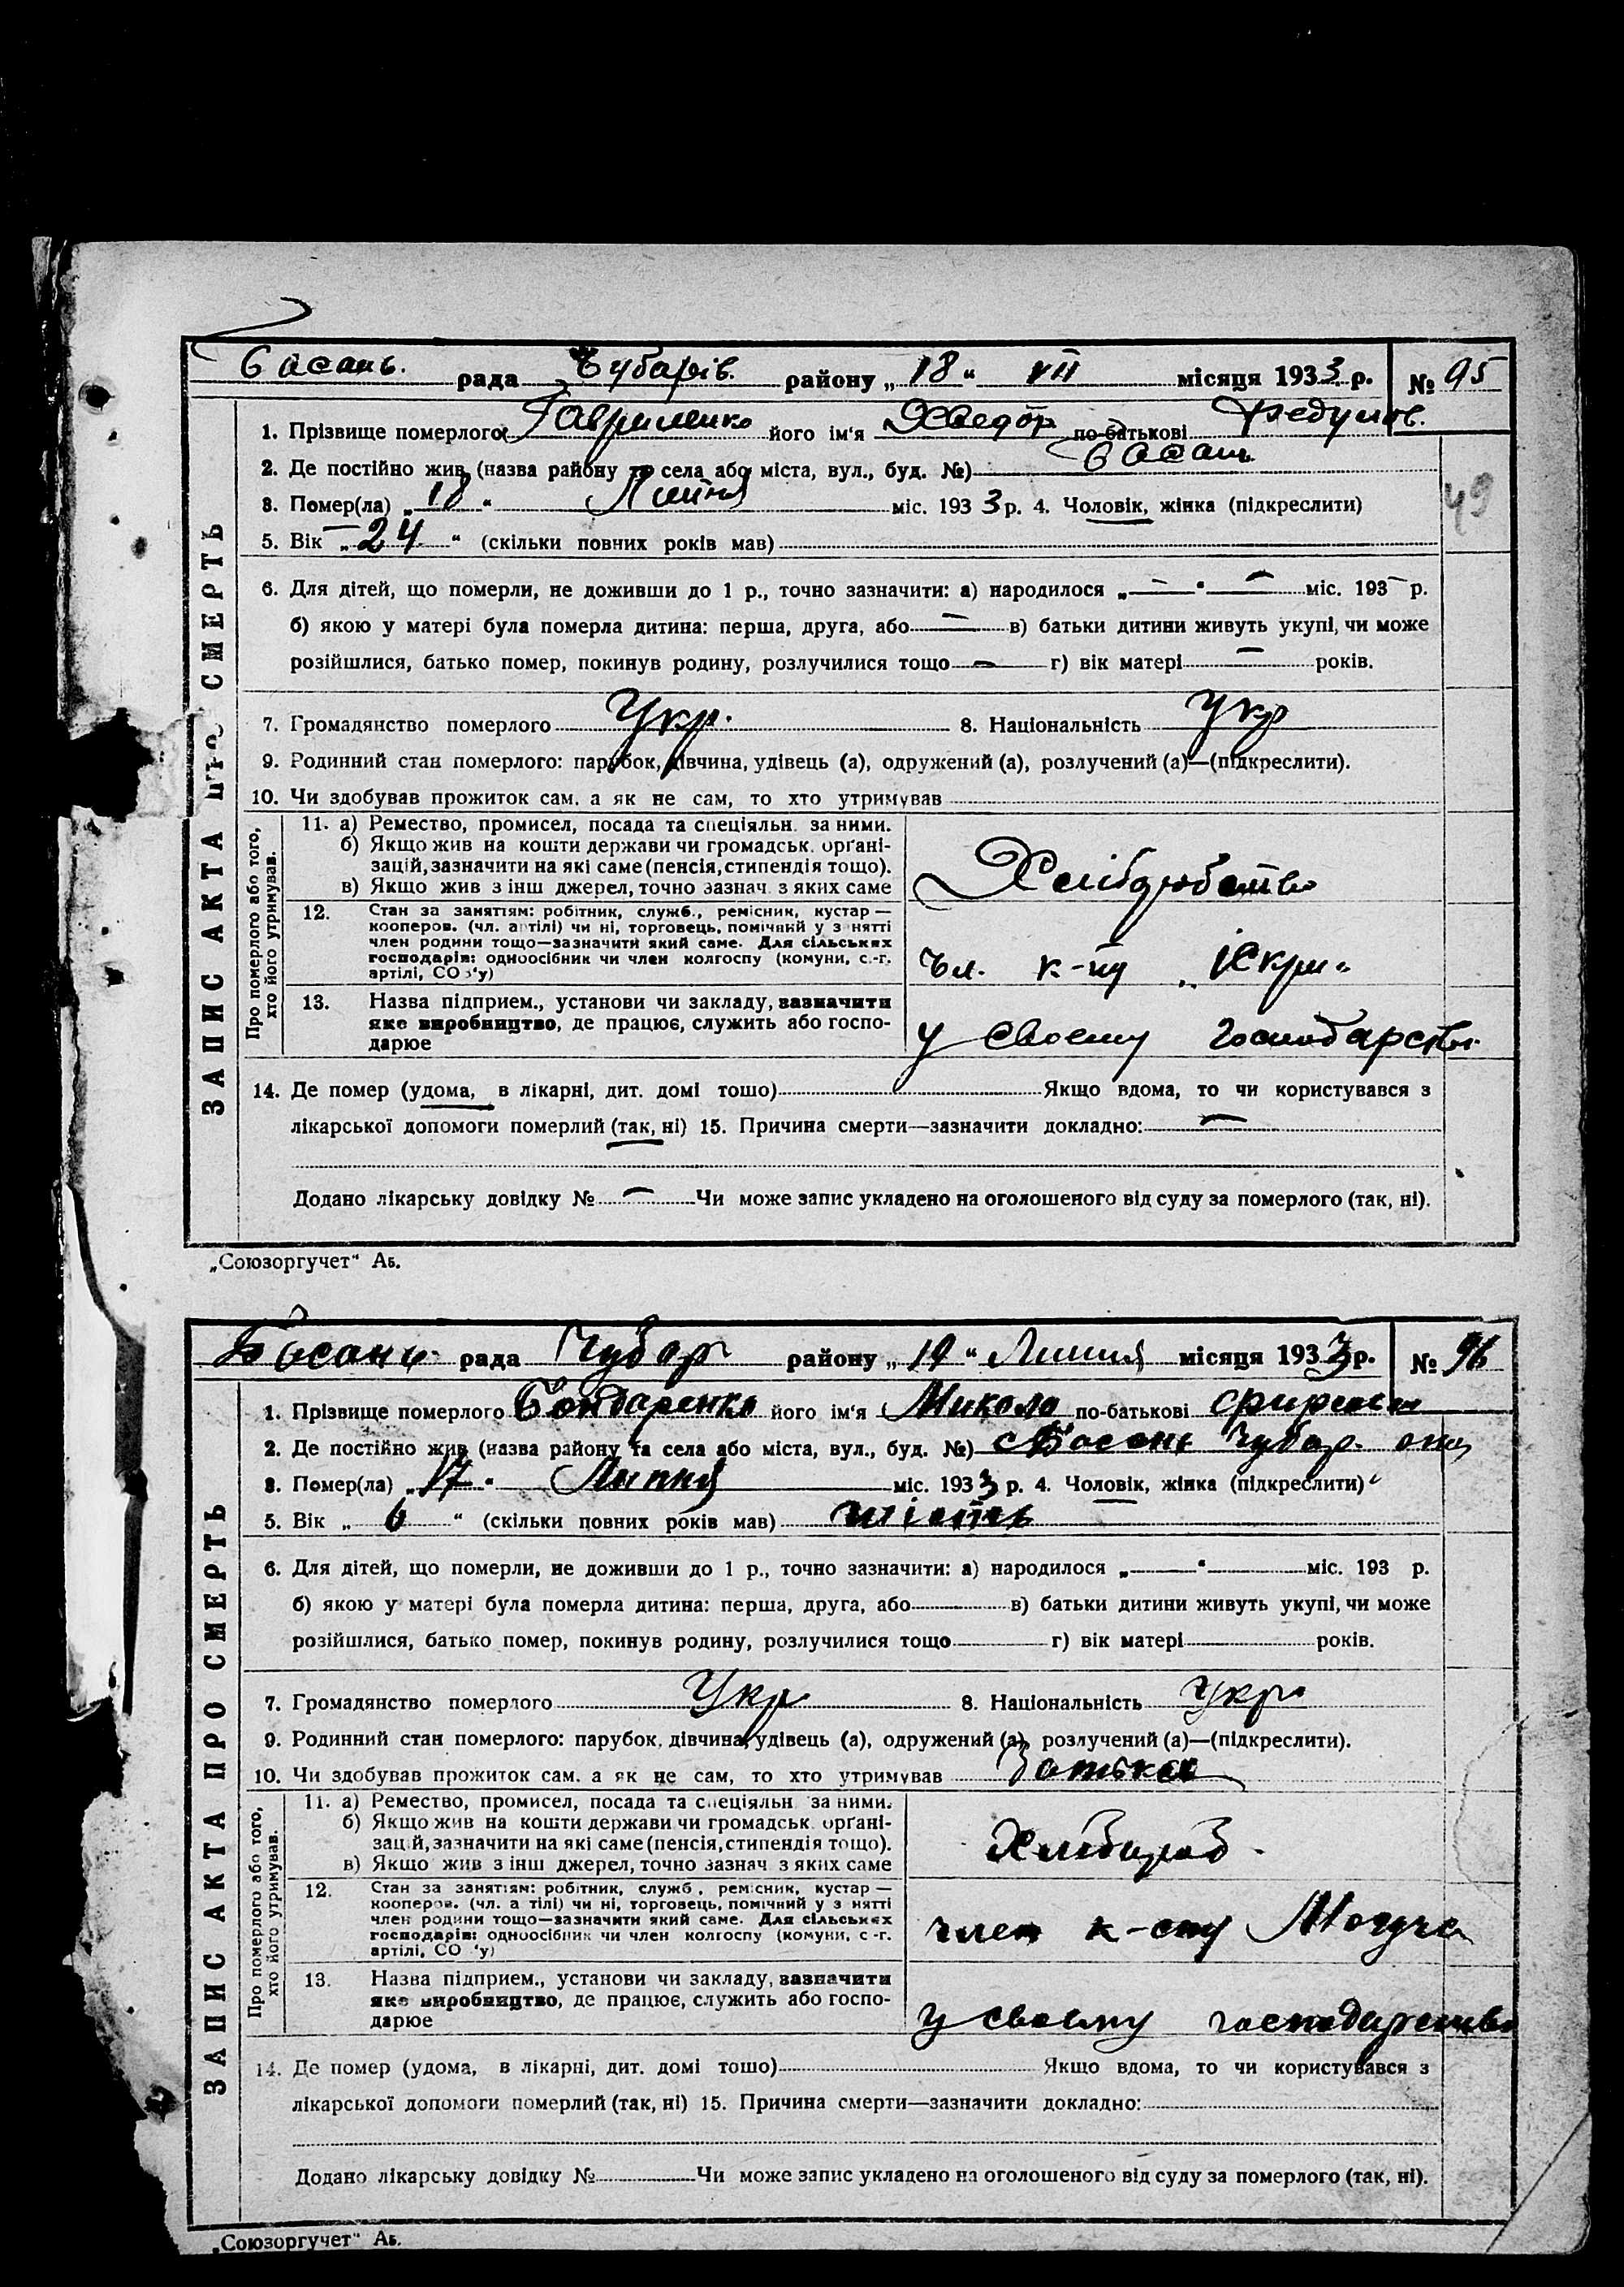 Басань. рада Чубарів. району „18“ VII місяця 1933 р. № 95
1. Прізвище померлого Гавриленко його ім'я Хведор по-батькові Федулов.
2. Де постійно жив (назва району та села або міста, вул., буд. №) Басань
3. Помер(ла) „18“ Липня міс. 1933 р. 4. Чоловік, жінка (підкреслити)
49
5. Вік „24“ (скільки повних років мав)
6. Для дітей, що померли, не доживши до 1 р., точно зазначити: а) народилося „—“ — міс. 193— р.
б) якою у матері була померла дитина: перша, друга, або — в) батьки дитини живуть укупі, чи може
розійшлися, батько помер, покинув родину, розлучилися тощо — г) вік матері — років.
7. Громадянство померлого Укр. 8. Національність Укр
9. Родинний стан померлого: парубок, дівчина, удівець (а), одружений (а), розлучений (а)—(підкреслити).
10. Чи здобував прожиток сам, а як не сам, то хто утримував
ЗАПИС АКТА ПРО СМЕРТЬ
Про померлого або того,
хто його утримував.
11. а) Ремество, промисел, посада та спеціяльн. за ними.
б) Якщо жив на кошти держави чи громадськ. орґані-
зацій, зазначити на які саме (пенсія, стипендія тощо).
в) Якщо жив з інш джерел, точно зазнач. з яких саме
Хліборобство
12. Стан за заняттям: робітник, служб., ремісник, кустар —
кооперов. (чл. артілі) чи ні, торговець, помічний у занятті
член родини тощо—зазначити який саме. Для сільських
господарів: одноосібник чи член колгоспу (комуни, с.-г.
артілі, СОЗ'у)
Чл. к-пу „Іскри“
13. Назва підприєм., установи чи закладу, зазначити
яке виробництво, де працює, служить або госпо-
дарює
у своєму господарстві.
14. Де помер (удома, в лікарні, дит. домі тощо) Якщо вдома, то чи користувався з
лікарської допомоги померлий (так, ні) 15. Причина смерти—зазначити докладно: —
Додано лікарську довідку № — Чи може запис укладено на оголошеного від суду за померлого (так, ні).
„Союзоргучет“ Аб.
Басань рада Чубар району „19“ Липня місяця 1933 р. № 96
1. Прізвище померлого Бондаренко його ім'я Микола по-батькові
2. Де постійно жив (назва району та села або міста, вул., буд. №) с Басань Чубар.
3. Помер(ла) „17“ Липня міс. 1933 р. 4. Чоловік, жінка (підкреслити)
5. Вік „6“ (скільки повних років мав) шість
6. Для дітей, що померли, не доживши до 1 р., точно зазначити: а) народилося „ “ міс. 193 р.
б) якою у матері була померла дитина: перша, друга, або в) батьки дитини живуть укупі, чи може
розійшлися, батько помер, покинув родину, розлучилися тощо г) вік матері років.
7. Громадянство померлого Укр 8. Національність Укр.
9. Родинний стан померлого: парубок, дівчина, удівець (а), одружений (а), розлучений (а)—(підкреслити).
10. Чи здобував прожиток сам, а як не сам, то хто утримував Батько
ЗАПИС АКТА ПРО СМЕРТЬ
Про померлого або того,
хто його утримував.
11. а) Ремество, промисел, посада та спеціяльн. за ними.
б) Якщо жив на кошти держави чи громадськ. орґані-
зацій, зазначити на які саме (пенсія, стипендія тощо).
в) Якщо жив з інш джерел, точно зазнач. з яких саме
Хлібороб.
12. Стан за заняттям: робітник, служб., ремісник, кустар —
кооперов. (чл. артілі) чи ні, торговець, помічний у занятті
член родини тощо—зазначити який саме. Для сільських
господарів: одноосібник чи член колгоспу (комуни, с.-г.
артілі, СОЗ'у)
член к-спу
13. Назва підприєм., установи чи закладу, зазначити
яке виробництво, де працює, служить або госпо-
дарює
у своєму господарстві
14. Де помер (удома, в лікарні, дит. домі тощо) Якщо вдома, то чи користувався з
лікарської допомоги померлий (так, ні) 15. Причина смерти—зазначити докладно:
Додано лікарську довідку № Чи може запис укладено на оголошеного від суду за померлого (так, ні).
„Союзоргучет“ Аб.